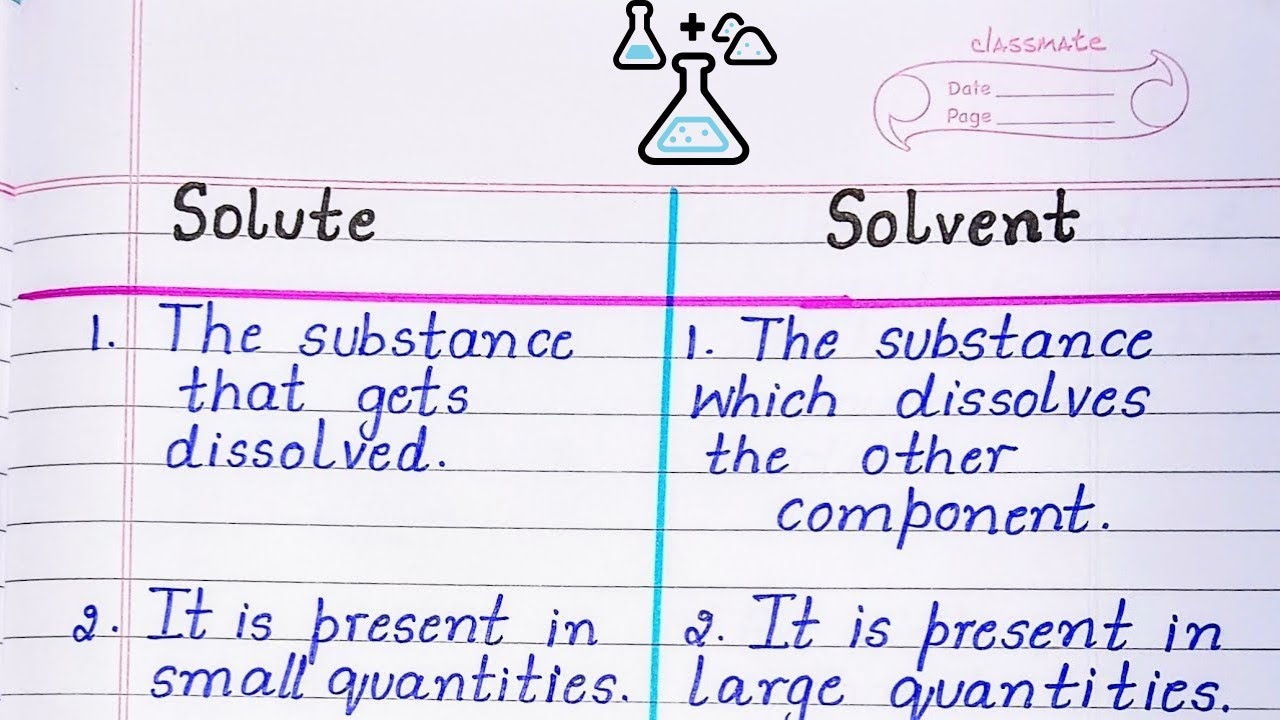 classmate
Date
Page
Solute
Solvent
1. The substance
that gets
dissolved.
1. The substance
which dissolves
the other
component.
2. It is present in
small quantities.
2. It is present in
large quantities.